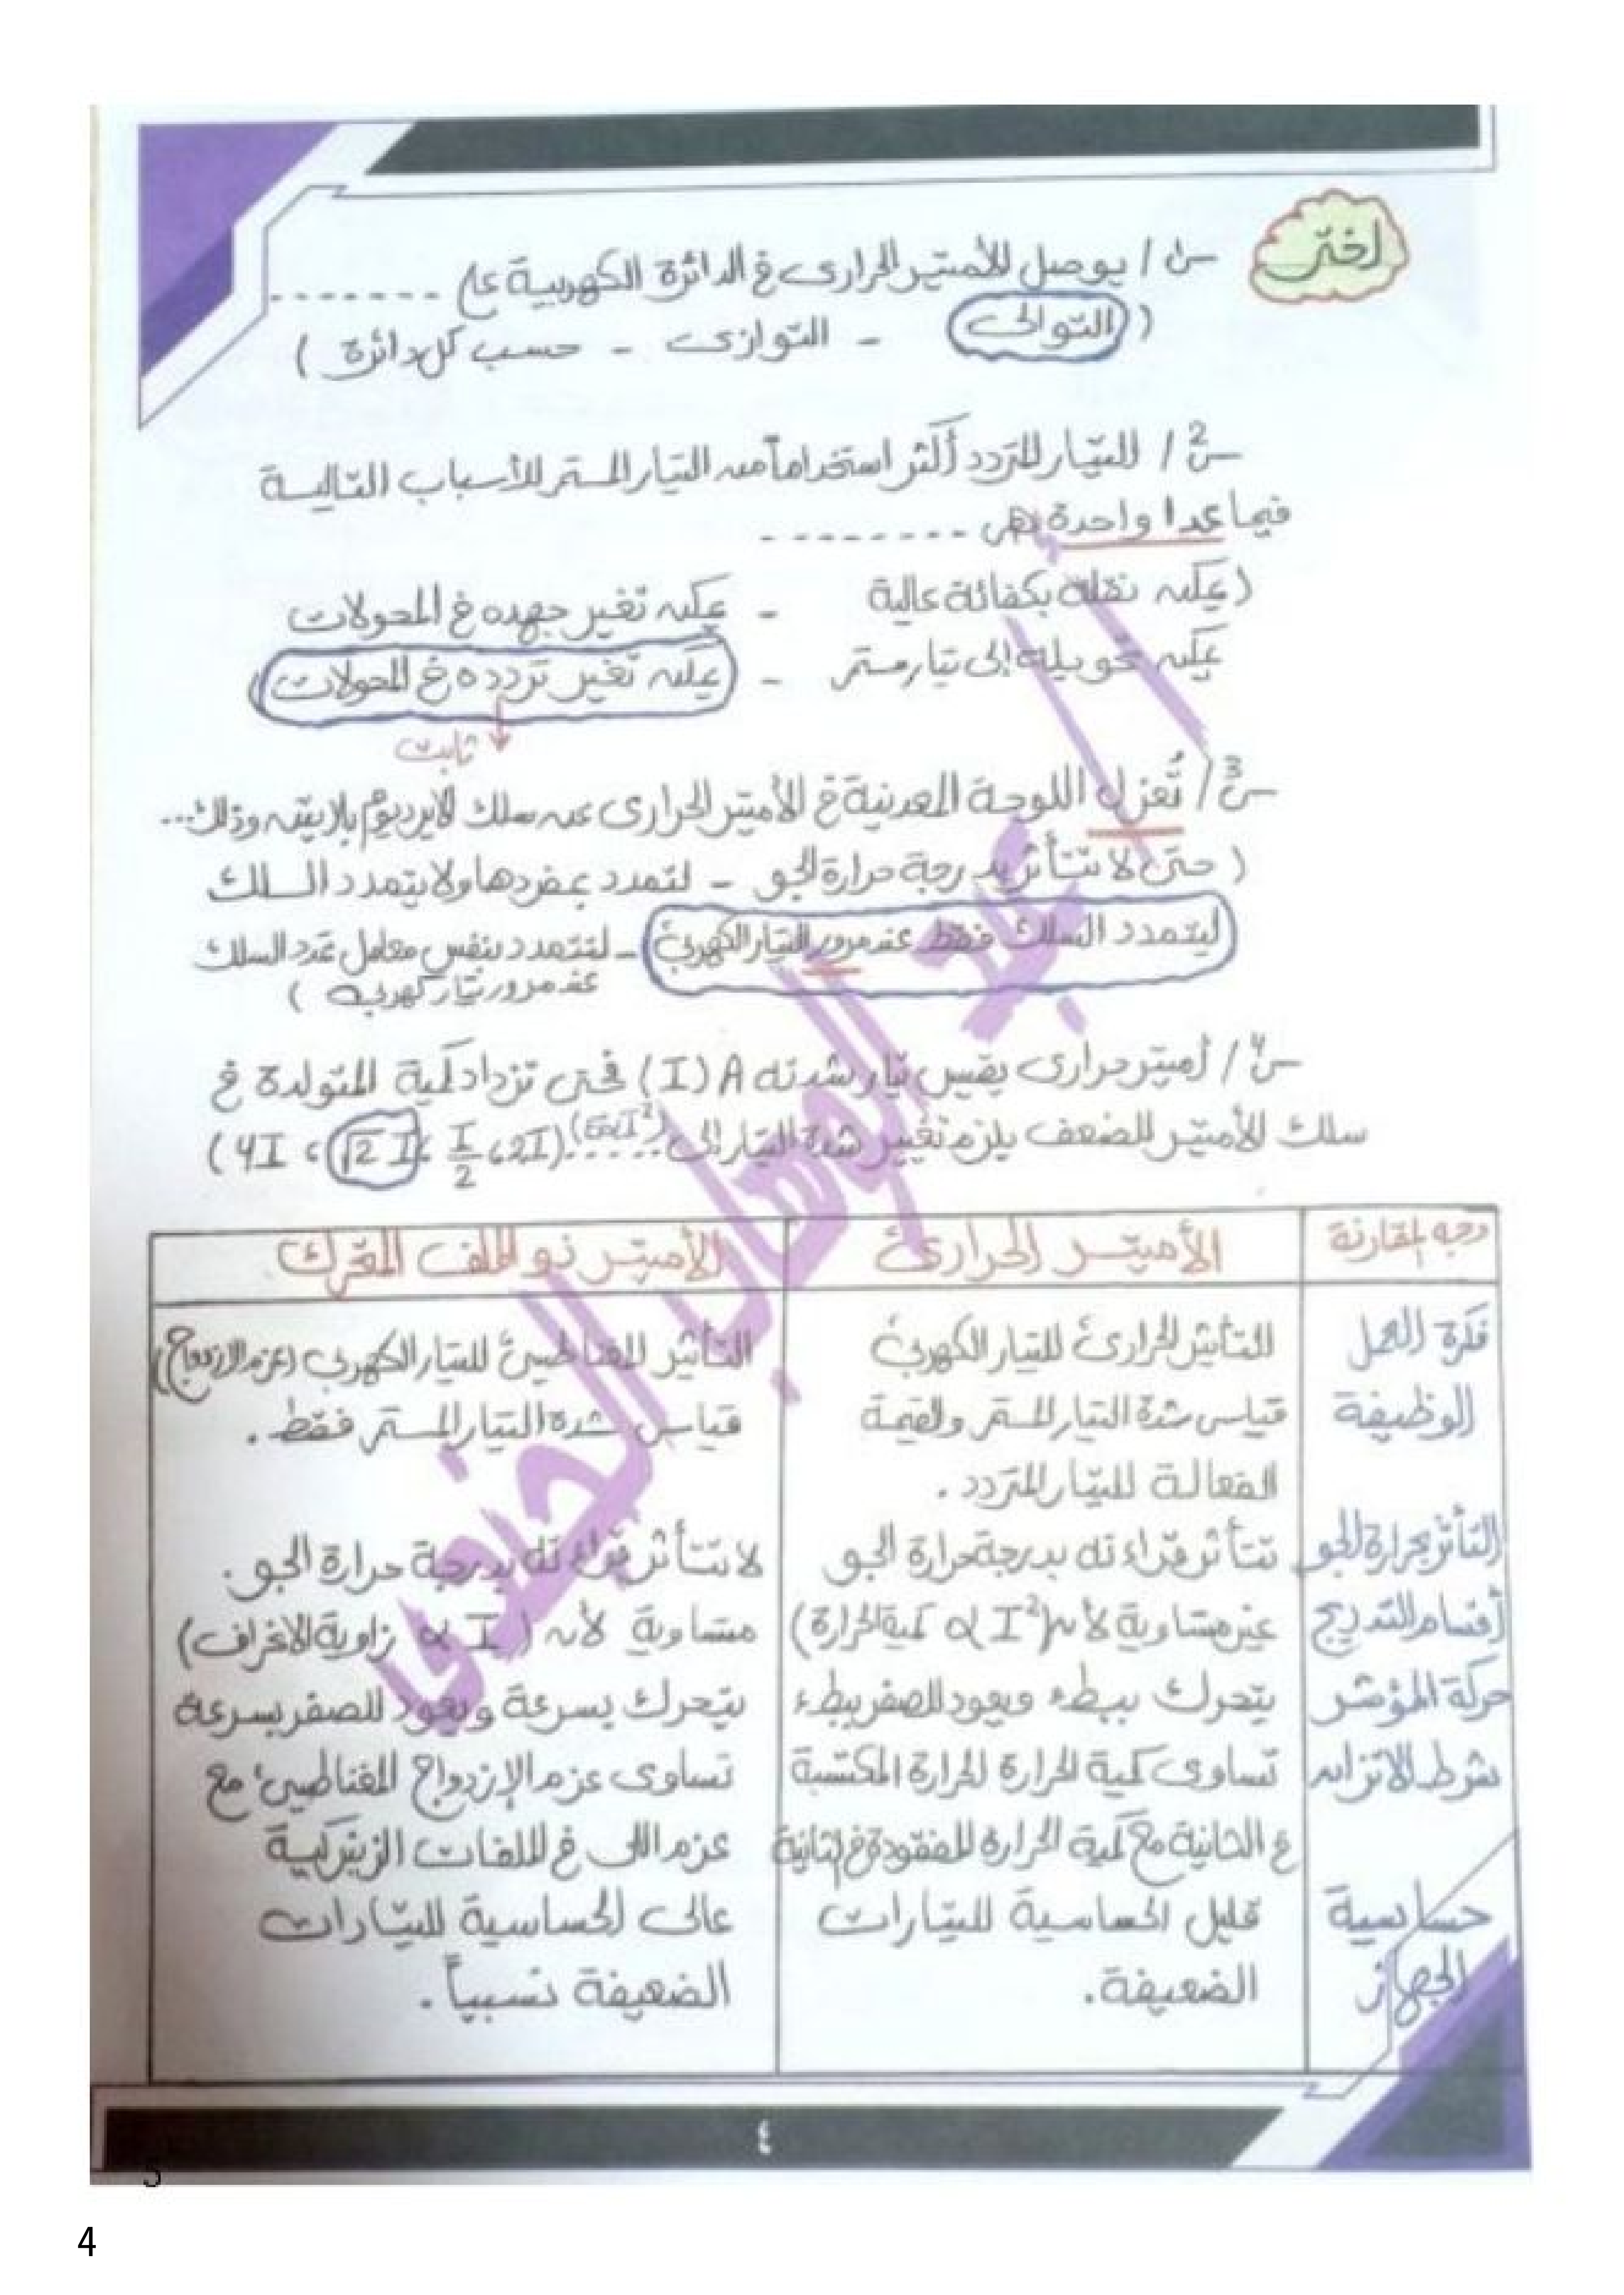 اختر
س1 / يوصل الأميتر الحرارى فى الدائرة الكهربية على --------
( التوالى - التوازى - حسب كل دائرة )
س2 / التيار المتردد أكثر استخداماً من التيار المستمر للأسباب التالية
فيما عدا واحدة هى ---------
(يمكن نقله بكفائة عالية - يمكن تغير جهده فى المحولات
يمكن تحويله إلى تيار مستمر - يمكن تغير تردده فى المحولات)
ثابت
س3 / تُعزل اللوحة المعدنية فى الأميتر الحرارى عن سلك الإيريديوم بلاتين وذلك...
( حتى لا تتأثر بدرجة حرارة الجو - لتمدد بمفردها ولا يتمدد السلك
ليتمدد السلك فقط عند مرور التيار الكهربى - لتتمدد بنفس معامل تمدد السلك
عند مرور تيار كهربى )
س4 / أميتر حرارى يقيس تيار شدته A (I) فحتى تزداد كمية المتولدة فى
سلك الأميتر للضعف يلزم تغيير شدة التيار إلى ...... (2I ، I/2 ، √2 I ، 4I )
وجه المقارنة | الأميتر الحرارى | الأميتر ذو الملف المتحرك
فكرة العمل | التأثير الحرارى للتيار الكهربى | التأثير المغناطيسى للتيار الكهربى (عزم الازدواج)
الوظيفة | قياس شدة التيار المستمر والقيمة | قياس شدة التيار المستمر فقط .
الفعالة للتيار المتردد .
التأثر بحرارة الجو | تتأثر قراءته بدرجة حرارة الجو | لا تتأثر قراءته بدرجة حرارة الجو .
أقسام التدريج | غير متساوية لأن (I² ∝ كمية الحرارة) | متساوية لأن ( I ∝ زاوية الانحراف)
حركة المؤشر | يتحرك ببطء ويعود للصفر ببطء | يتحرك بسرعة ويعود للصفر بسرعة
شرط الاتزان | تساوى كمية الحرارة الحرارة المكتسبة | تساوى عزم الإزدواج المغناطيسى مع
فى الثانية مع كمية الحرارة المفقودة فى الثانية | عزم اللى فى الملفات الزنبركية
حساسية | قليل الحساسية للتيارات | عالى الحساسية للتيارات
الجهاز | الضعيفة. | الضعيفة نسبياً .
عبد الوهاب الجندى
٤
5
4